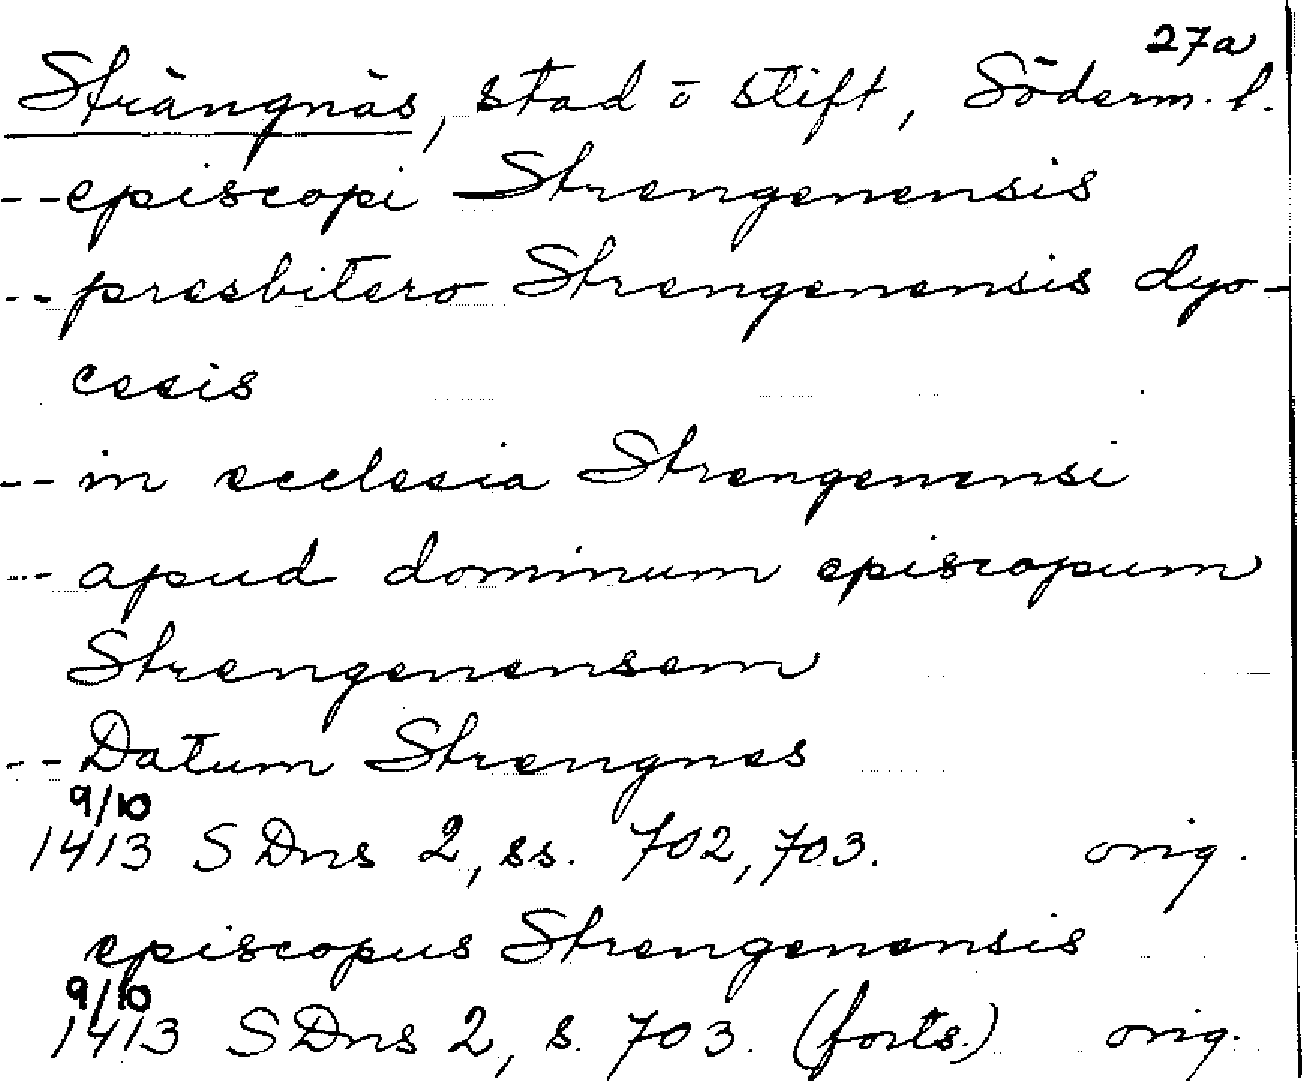 27a
Strängnäs, stad o stift, Söderm. l.
-- episcopi Strengenensis
-- presbitero Strengenensis dyo-
cesis
-- in ecclesia Strengenensi
-- apud dominum episcopum
Strengenensem
-- Datum Strengnes
9/10
1413 SDns 2, ss. 702, 703. orig.
episcopus Strengenensis
9/10
1413 SDns 2, s. 703. (forts.) orig.